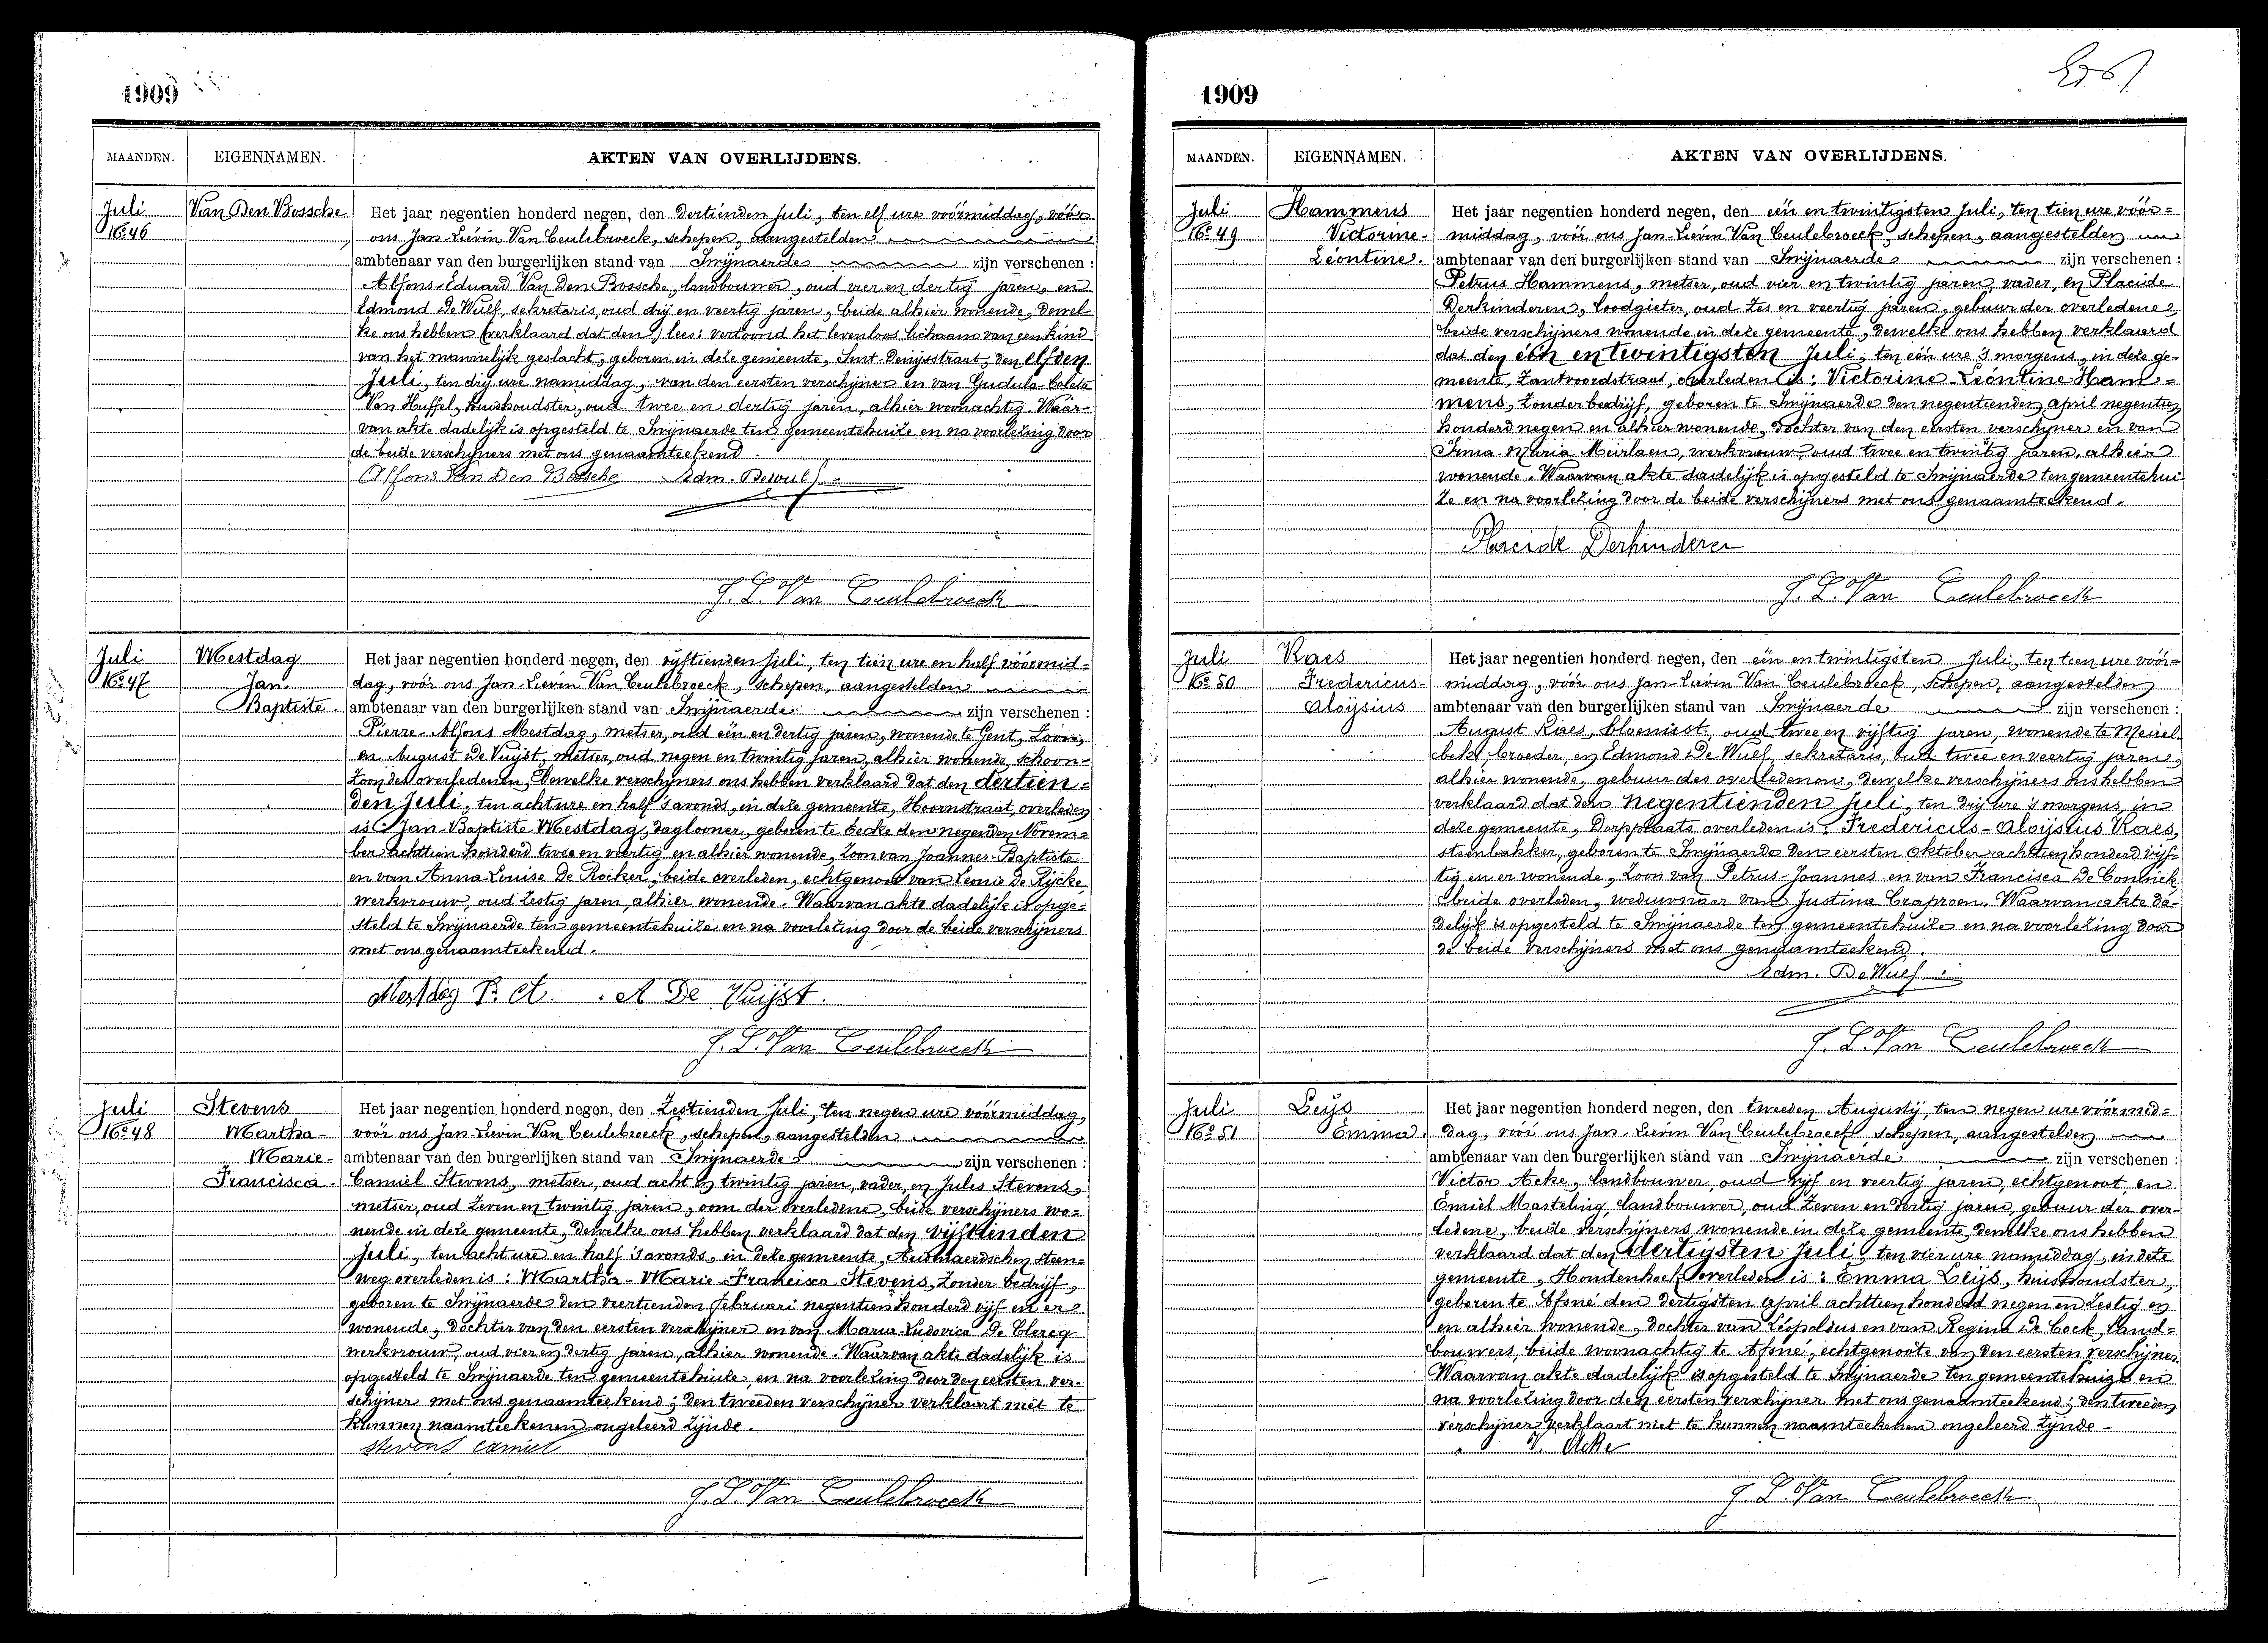 1909
MAANDEN. EIGENNAMEN. AKTEN VAN OVERLIJDENS.
Juli Van Den Bossche Het jaar negentien honderd negen, den dertienden Juli, ten elf ure voormiddag, vóór
No 46 ons Jan-Lievin Van Ceulebroeck, schepen, aangestelden
ambtenaar van den burgerlijken stand van Swijnaerde zijn verschenen :
Alfons-Eduard Van Den Bossche, landbouwer, oud vier en dertig jaren, en
Edmond De Wulf, sekretaris, oud drij en veertig jaren, beide alhier wonende, dewel-
ke ons hebben (verklaard dat den) lees: vertoond het levenloos lichaam van een kind
van het mannelijk geslacht, geboren in deze gemeente, Sint-Denijsstraat, den elfden
Juli, ten drij ure namiddag, van den eersten verschijner en van Gudula-Coleta
Van Huffel, huishoudster, oud twee en dertig jaren, alhier woonachtig. Waar-
van akte dadelijk is opgesteld te Swijnaerde ten gemeentehuize en na voorlezing door
de beide verschijners met ons genaamteekend.
Alfons Van Den Bossche Edm. Dewulf
J. L. Van Ceulebroeck
Juli Mestdag Het jaar negentien honderd negen, den vijftienden Juli, ten tien ure en half vóórmid-
No 47 Jan- dag, vóór ons Jan-Lievin Van Ceulebroeck, schepen, aangestelden
Baptiste. ambtenaar van den burgerlijken stand van Swijnaerde zijn verschenen :
Pierre-Alfons Mestdag, metser, oud één en dertig jaren, wonende te Gent, zoon,
en August De Vuijst, metser, oud negen en twintig jaren, alhier wonende, schoon-
zoon des overledenen, dewelke verschijners ons hebben verklaard dat den dertien-
den Juli, ten acht ure en half 's avonds, in deze gemeente, Hoornstraat, overleden
is: Jan-Baptiste Mestdag, daglooner, geboren te Eecke den negenden Novem-
ber achttien honderd twee en veertig en alhier wonende, zoon van Joannes-Baptiste
en van Anna-Louise De Rocker, beide overleden, echtgenoot van Leonie De Rycke,
werkvrouw, oud zestig jaren, alhier wonende. Waarvan akte dadelijk is opge-
steld te Swijnaerde ten gemeentehuize en na voorlezing door de beide verschijners
met ons genaamteekend.
Mestdag P. A. A De Vuijst.
J. L. Van Ceulebroeck
Juli Stevens Het jaar negentien honderd negen, den zestienden Juli, ten negen ure vóórmiddag,
No 48 Martha- vóór ons Jan-Lievin Van Ceulebroeck, schepen, aangestelden
Marie- ambtenaar van den burgerlijken stand van Swijnaerde zijn verschenen :
Francisca. Camiel Stevens, metser, oud acht en twintig jaren, vader, en Jules Stevens,
metser, oud zeven en twintig jaren, oom der overledene, beide verschijners wo-
nende in deze gemeente, dewelke ons hebben verklaard dat den vijftienden
Juli, ten acht ure en half 's avonds, in deze gemeente, Audenaerdschen steen-
weg overleden is: Martha-Marie-Francisca Stevens, zonder bedrijf,
geboren te Swijnaerde den veertienden Februari negentien honderd vijf en er
wonende, dochter van den eersten verschijner en van Maria-Ludovica De Clercq,
werkvrouw, oud vier en dertig jaren, alhier wonende. Waarvan akte dadelijk is
opgesteld te Swijnaerde ten gemeentehuize, en na voorlezing door den eersten ver-
schijner met ons genaamteekend; den tweeden verschijner verklaart niet te
kunnen naamteekenen ongeleerd zijnde.
Stevens Camiel
J. L. Van Ceulebroeck
1909
MAANDEN. EIGENNAMEN. AKTEN VAN OVERLIJDENS.
Juli Hammens Het jaar negentien honderd negen, den één en twintigsten Juli, ten tien ure vóór-
No 49 Victorine- middag, vóór ons Jan-Lievin Van Ceulebroeck, schepen, aangestelden
Léontine. ambtenaar van den burgerlijken stand van Swijnaerde zijn verschenen :
Petrus Hammens, metser, oud vier en twintig jaren, vader, en Placide
Derkinderen, loodgieter, oud zes en veertig jaren, gebuur der overledene,
beide verschijners wonende in deze gemeente, dewelke ons hebben verklaard
dat den één en twintigsten Juli, ten één ure 's morgens, in deze ge-
meente, Zantvoordstraat, overleden is: Victorine-Léontine Ham-
mens, zonder bedrijf, geboren te Swijnaerde den negentienden april negentien
honderd negen en alhier wonende, dochter van den eersten verschijner en van
Irma-Maria Meirlaen, werkvrouw oud twee en twintig jaren, alhier
wonende. Waarvan akte dadelijk is opgesteld te Swijnaerde ten gemeentehui-
ze en na voorlezing door de beide verschijners met ons genaamteekend.
Placide Derkinderen
J. L. Van Ceulebroeck
Juli Raes Het jaar negentien honderd negen, den één en twintigsten Juli, ten tien ure vóór-
No 50 Fredericus- middag, vóór ons Jan-Lievin Van Ceulebroeck, schepen, aangestelden
Aloijsius ambtenaar van den burgerlijken stand van Swijnaerde zijn verschenen :
August Raes, bloemist, oud twee en vijftig jaren, wonende te Meirel-
beke, broeder, en Edmond De Wulf, sekretaris, oud twee en veertig jaren,
alhier wonende, gebuur des overledenen, dewelke verschijners ons hebben
verklaard dat den negentienden Juli, ten drij ure 's morgens, in
deze gemeente, Dorpplaats overleden is: Fredericus-Aloijsius Raes,
steenbakker, geboren te Swijnaerde den eersten Oktober achttien honderd vijf-
tig en er wonende, zoon van Petrus-Joannes en van Francisca De Coninck
beide overleden, weduwnaar van Justina Craproen. Waarvan akte da-
delijk is opgesteld te Swijnaerde ten gemeentehuize en na voorlezing door
de beide verschijners met ons genaamteekend.
Edm. DeWulf
J. L. Van Ceulebroeck
Juli Leijs Het jaar negentien honderd negen, den tweeden Augustij, ten negen ure vóórmid-
No 51 Emma. dag, vóór ons Jan-Lievin Van Ceulebroeck, schepen, aangestelden
ambtenaar van den burgerlijken stand van Swijnaerde zijn verschenen :
Victor Acke, landbouwer, oud vijf en veertig jaren, echtgenoot en
Emiel Masteling, landbouwer, oud zeven en dertig jaren, gebuur der over-
ledene, beide verschijners wonende in deze gemeente, dewelke ons hebben
verklaard dat den dertigsten Juli, ten vier ure namiddag, in deze
gemeente, Hondenhoek overleden is: Emma Leijs, huishoudster,
geboren te Afsné den dertigsten april achttien honderd negen en zestig en
en alhier wonende, dochter van Léopoldus en van Regina De Cock, land-
bouwers, beide woonachtig te Afsné, echtgenoote van den eersten verschijner.
Waarvan akte dadelijk is opgesteld te Swijnaerde ten gemeentehuize en
na voorlezing door den eersten verschijner met ons genaamteekend; den tweeden
verschijner verklaart niet te kunnen naamteekenen ongeleerd zijnde.
V. Acke
J. L. Van Ceulebroeck